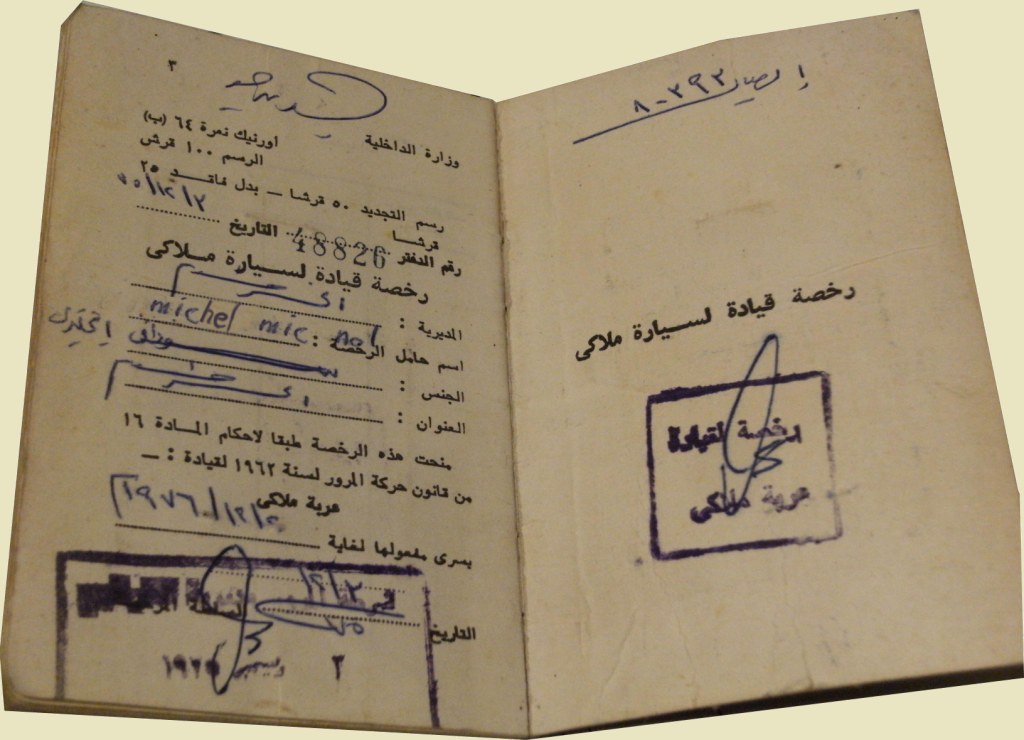 ٣
وزارة الداخلية اورنيك نمرة ٦٤ (ب)
الرسم ١٠٠ قرش
رسم التجديد ٥٠ قرشا — بدل فاقد ٢٥
قرشا
٧٥/١٢/٣
رقم الدفتر 48826 التاريخ
رخصة قيادة لسيارة ملاكى
المديرية : الخرطوم
اسم حامل الرخصة : michel mic. nol
الجنس : انجليزى
العنوان : الخرطوم
منحت هذه الرخصة طبقا لاحكام المادة ١٦
من قانون حركة المرور لسنة ١٩٦٢ لقيادة : —
عربة ملاكي
يسرى مفعولها لغاية ١٩٧٦/١٢/٢م
التاريخ
٣ ديسمبر ١٩٧٥
إيصال ٣٩٣-٨
رخصة قيادة لسيارة ملاكى
رخصة لقيادة
عربة ملاكي